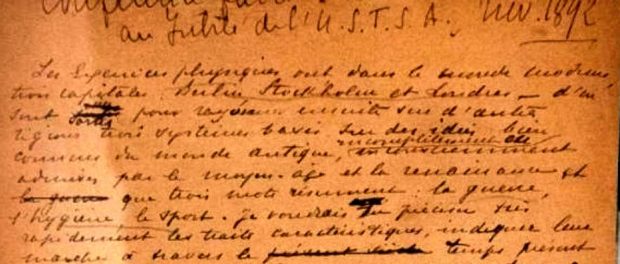 Conférence faite
au Jubilé de l'U.S.F.S.A., Nov. 1892
Les Exercices physiques ont dans le monde moderne
trois capitales : Berlin Stockholm et Londres – d'où
sont pour rayonner ensuite sur d'autres
régions trois systèmes basés sur des idées bien
connues du monde antique, incomplètement
admises par le moyen-age et la renaissance et
la guerre que trois mots résument : la guerre,
l'hygiène, le sport. Je voudrais en préciser très
rapidement les traits caractéristiques, indiquer leur
marche à travers le temps présent